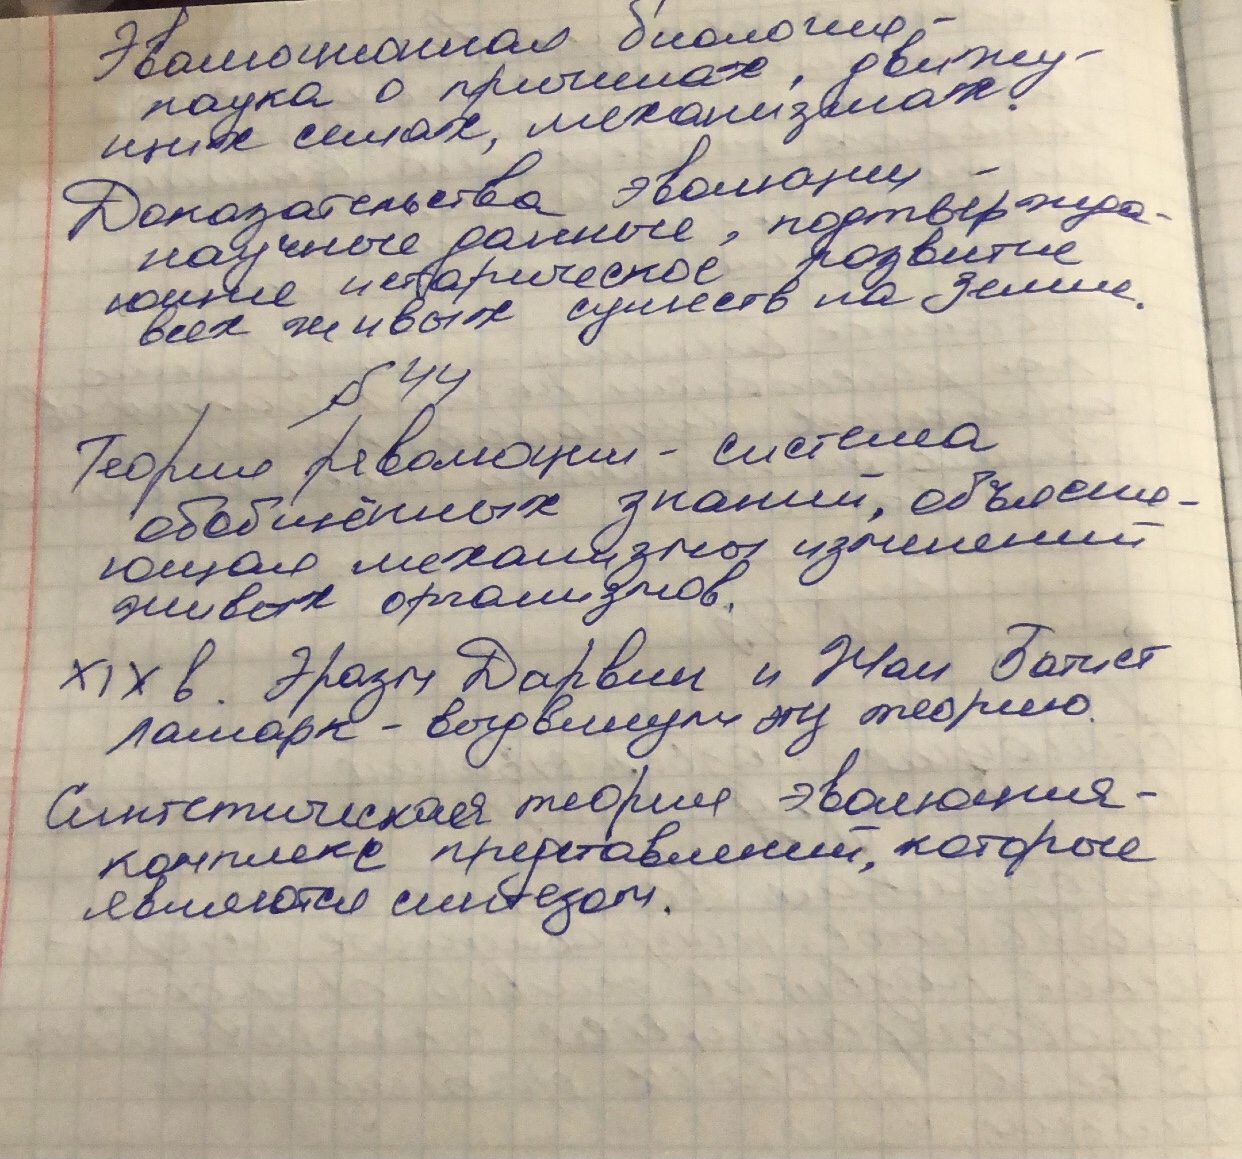 Эволюционная биология -
наука о причинах, движу-
щих силах, механизмах.
Доказательства эволюции -
научные данные, подтвержда-
ющие историческое развитие
всех живых существ на Земле.
§ 44
Теория революции - система
обобщённых знаний, объясня-
ющая механизмы изменений
живых организмов.
XIX в. Эразм Дарвин и Жан Батист
Ламарк - выдвинули эту теорию.
Синтетическая теория эволюция -
комплекс представлений, которые
являются синтезом.